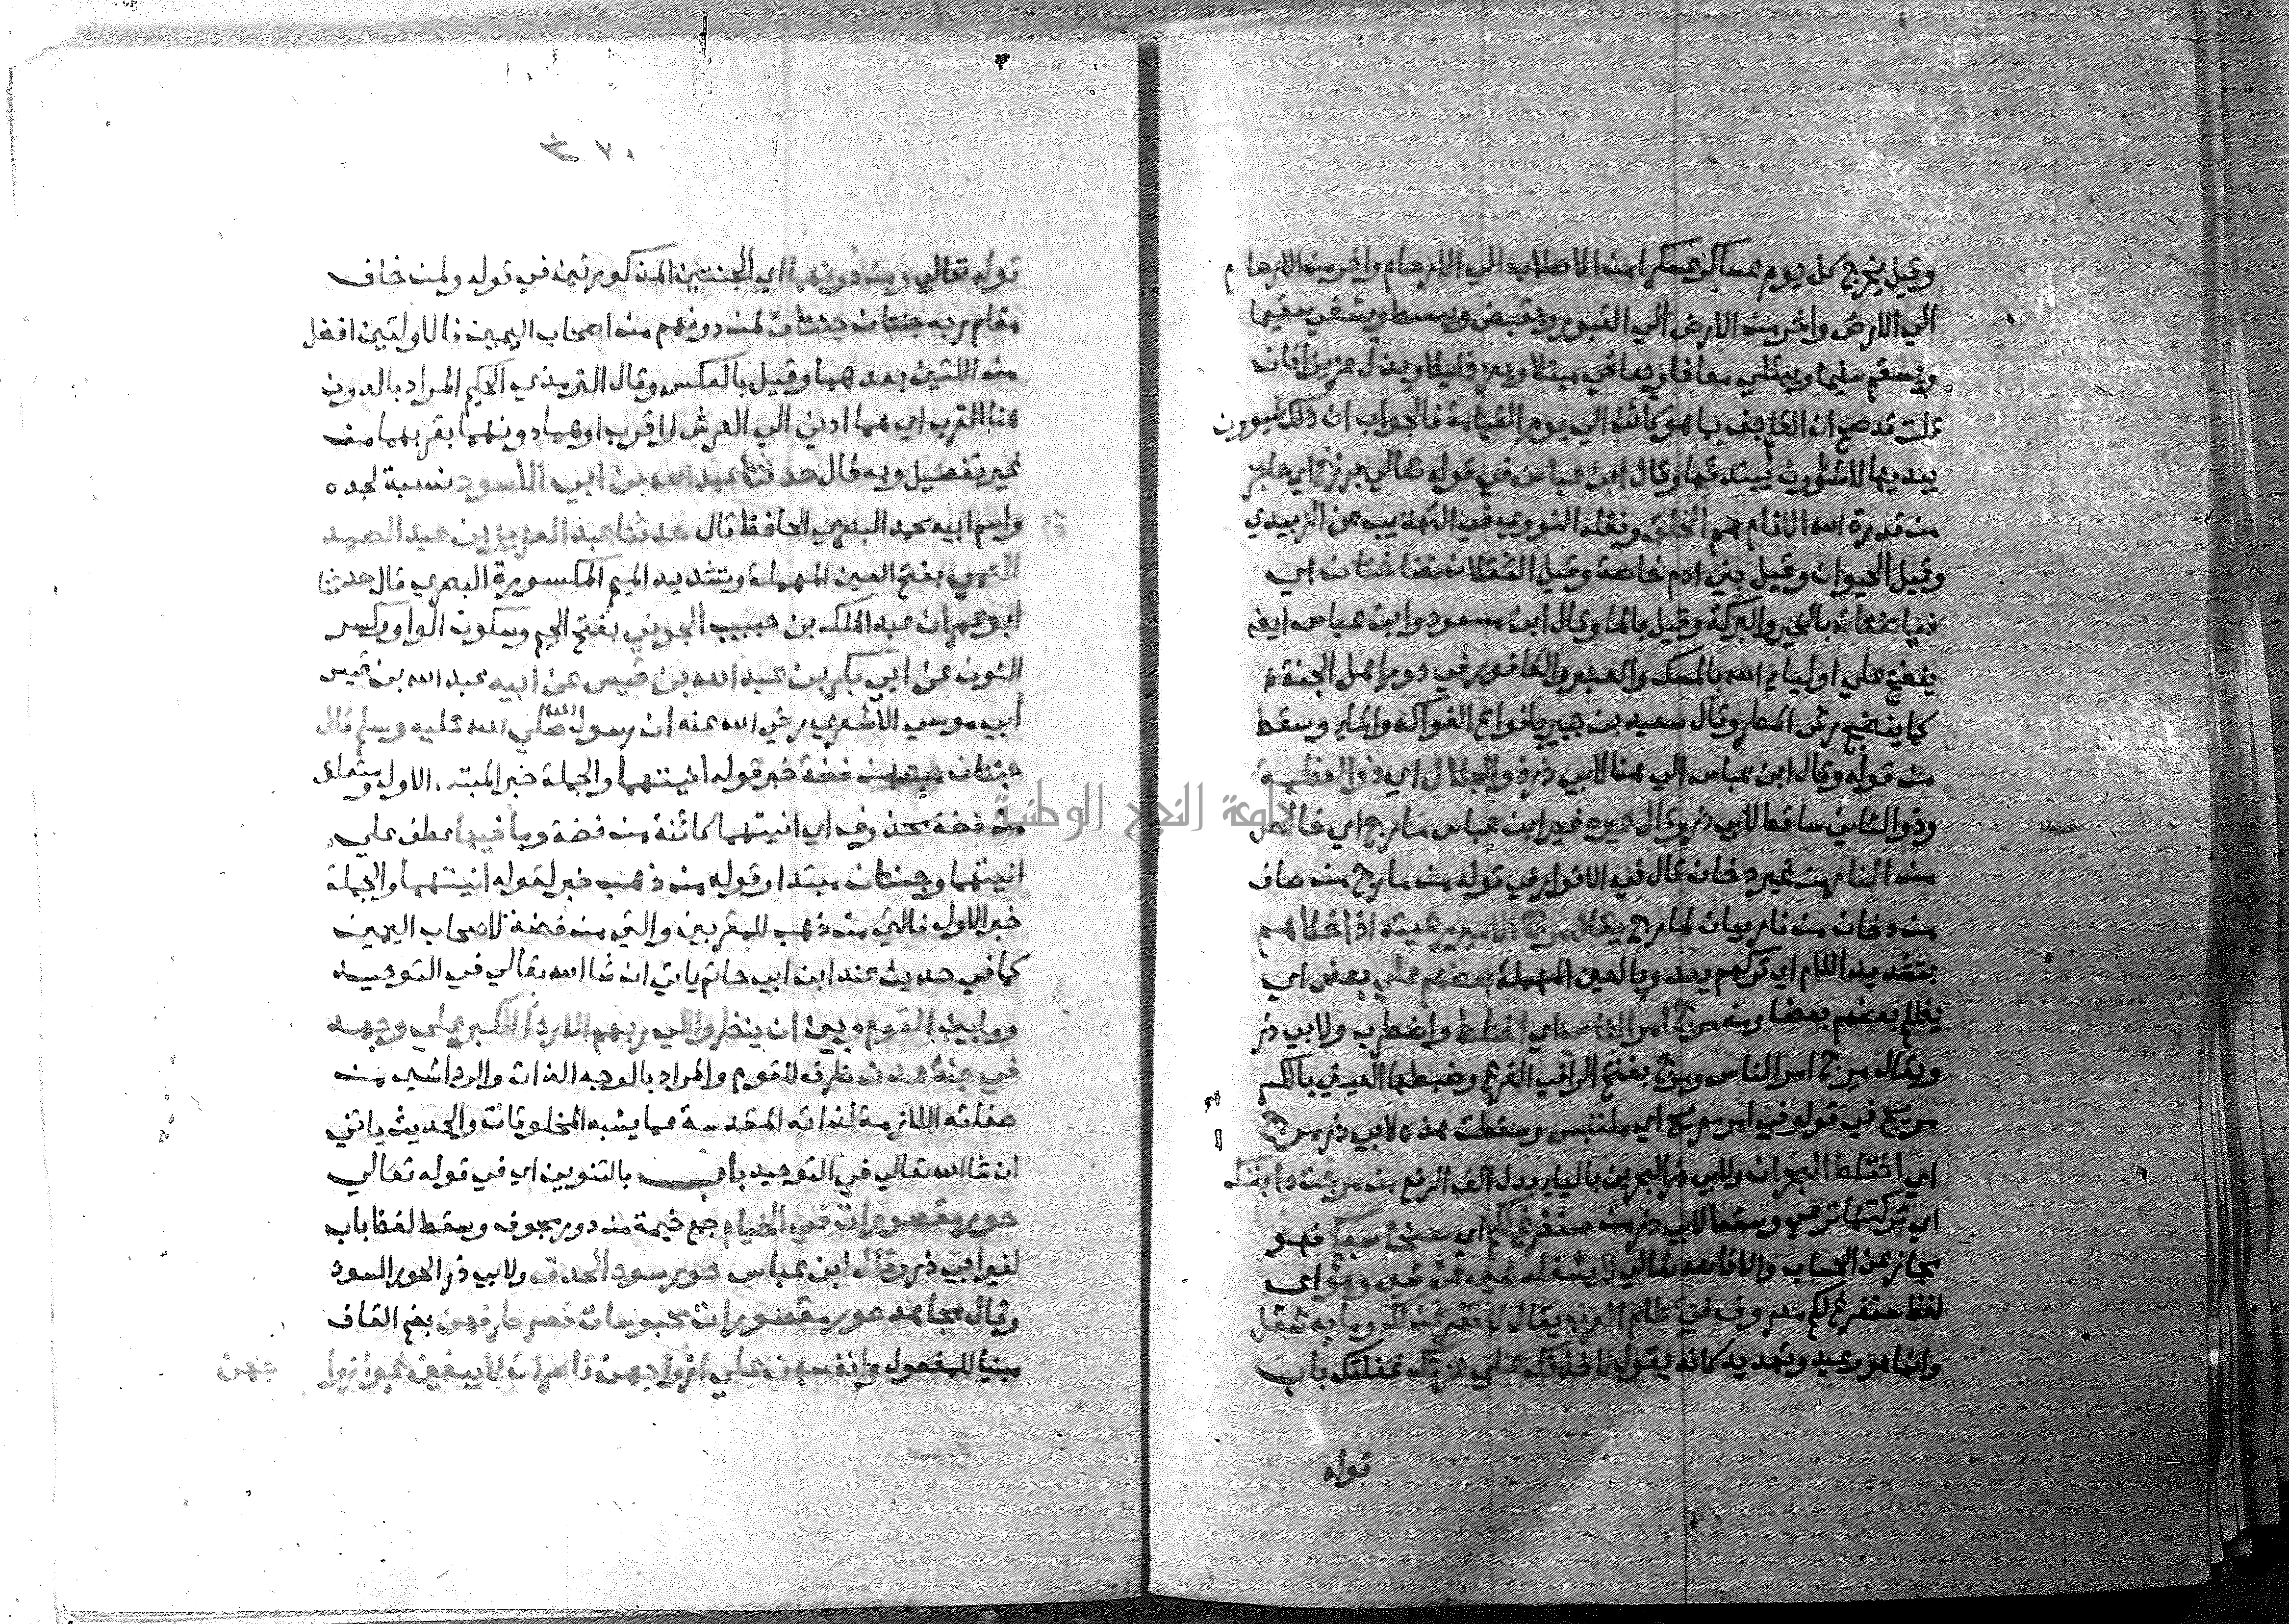 وقيل يخرج كل يوم عساكر عسكرا من الاصلاب الي الارحام واخر من الارحام
الي الارض واخر من الارض الي القبور ويقبض ويبسط ويشفي سقيما
ويسقم سليما ويبتلي معافا ويعافي مبتلا ويعز ذليلا ويذل عزيزا فان
قلت قد صح ان القلم جف بما هو كائن الي يوم القيامة فالجواب ان ذلك شيوون
يبديها لا شوون يبتديها وقال ابن عباس في قوله تعالي برزخ اي حاجز
من قدرة الله الانام هم الخلق ونقله النووي في التهذيب عن الزبيدي
وقيل الحيوان وقيل بني ادم خاصة وقيل الثقلان نضاختان اي
فياضتان بالخير والبركة وقيل بالماء وقال ابن مسعود وابن عباس ايضا
ينضخ علي اولياء الله بالمسك والعنبر والكافور في دور اهل الجنة
كما ينضخ رش المطر وقال سعيد بن جبير بانواع الفواكه والماء وسقط
من قوله وقال ابن عباس الي هنا لابي ذر ذو الجلال اي ذو العظمة
وذو الثاني ساقط لابي ذر وقال غيره غير ابن عباس مارج اي خالص
من النار من غير دخان قال في الانوار في قوله من مارج من صاف
من دخان من نار بيان لمارج يقال مرج الامير رعيته اذا خلاهم
بتشديد اللام اي تركهم يعدو بالعين المهملة بعضهم علي بعض اي
يظلم بعضهم بعضا ومنه مرج امر الناس اي اختلط واضطرب ولابي ذر
ويقال مرج امر الناس ومرج بفتح الراء في الفرع وضبطها العيني بالكسر
مريج في قوله في امر مريج اي ملتبس وسقطت هذه لابي ذر مرج
اي اختلط البحران ولابي ذر البحرين بالياء بدل الف الرفع من مرجت دابتك
اي تركتها ترعي وسقط لابي ذر من سنفرغ لكم اي سنحاسبكم فهو
مجاز عن الحساب والا فالله تعالي لا يشغله شي عن شي وهو اي
لفظ سنفرغ لكم معروف في كلام العرب يقال لا تفرغن لك وما به شغل
وانما هو وعيد وتهديد كانه يقول لاخذنك علي غرتك غفلتك باب
قوله
٣٧٠
قوله تعالي ومن دونهما اي الجنتين المذكورتين في قوله ولمن خاف
مقام ربه جنتان جنتان لمن دونهم من اصحاب اليمين فالاوليتين افضل
من اللتين بعدهما وقيل بالعكس وقال الترمذي الحكيم المراد بالدون
هنا القرب اي هما ادني الي العرش لاقرب اوهما دونهما بقربهما من
غير تفضيل وبه قال حدثنا عبد الله بن ابي الاسود نسبة لجده
واسم ابيه محمد البصري الحافظ قال حدثنا عبد العزيز بن عبد الصمد
العمي بفتح العين المهملة وتشديد الميم المكسورة البصري قال حدثنا
ابو عمران عبد الملك بن حبيب الجوني بفتح الجيم وسكون الواو وكسر
النون عن ابي بكر بن عبد الله بن قيس عن ابيه عبد الله بن قيس
ابي موسي الاشعري رضي الله عنه ان رسول الله صلي الله عليه وسلم قال
جنتان مبتدا من فضة خبر قوله انيتهما والجملة خبر المبتدا الاول ومتعلق
من فضة محذوف اي انيتهما كائنة من فضة وما فيهما عطف علي
انيتهما وجنتان مبتدا وقوله من ذهب خبر لقوله انيتهما والجملة
خبر الاول فالتي من ذهب للمقربين والتي من فضة لاصحاب اليمين
كما في حديث عند ابن ابي حاتم ياتي ان شا الله تعالي في التوحيد
وما بين القوم وبين ان ينظروا الي ربهم الا رداء الكبر علي وجهه
في جنة عدن ظرف للقوم والمراد بالوجه الذات والرداء شي من
صفاته اللازمة لذاته المقدسة عما يشبه المخلوقات والحديث ياتي
ان شا الله تعالي في التوحيد باب بالتنوين اي في قوله تعالي
حور مقصورات في الخيام جمع خيمة من در مجوف وسقط لفظ باب
لغير ابي ذر وقال ابن عباس حور سود الحدق ولابي ذر الحور السود
وقال مجاهد حور مقصورات محبوسات قصر طرفهن بضم القاف
مبنيا للمفعول وانفسهن علي ازواجهن قاصرات لا يبغين غير ازوا جهن
جامعة النجاح الوطنية